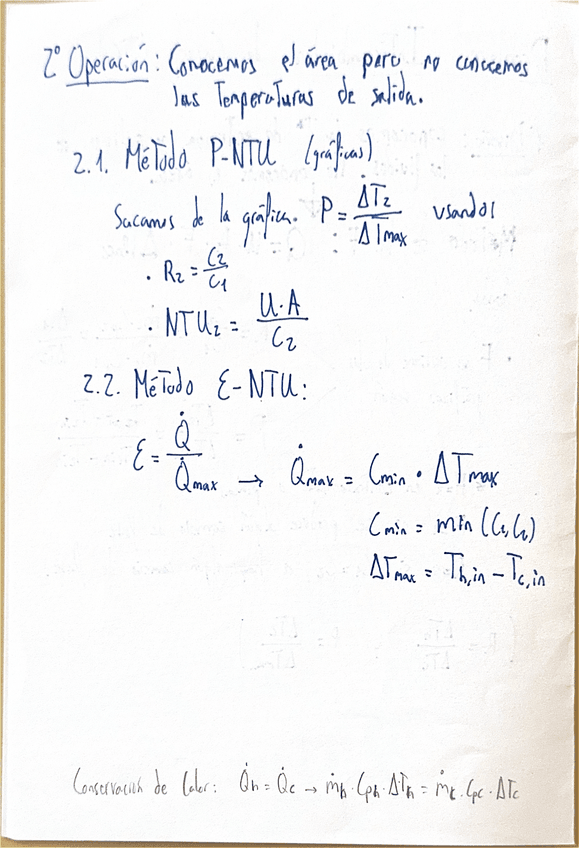 2º Operación: Conocemos el área pero no conocemos
las Temperaturas de salida.
2.1. Método P-NTU (gráficas)
Sacamos de la gráfica. P = ΔT₂ / ΔTmax usando:
· R₂ = C₂ / C₁
· NTU₂ = U·A / C₂
2.2. Método Ɛ-NTU:
Ɛ = Q̇ / Q̇max → Q̇max = Cmin · ΔTmax
Cmin = min (C₁, C₂)
ΔTmax = Th,in - Tc,in
Conservación de Calor: Q̇h = Q̇c → ṁh · Cph · ΔTh = ṁc · Cpc · ΔTc